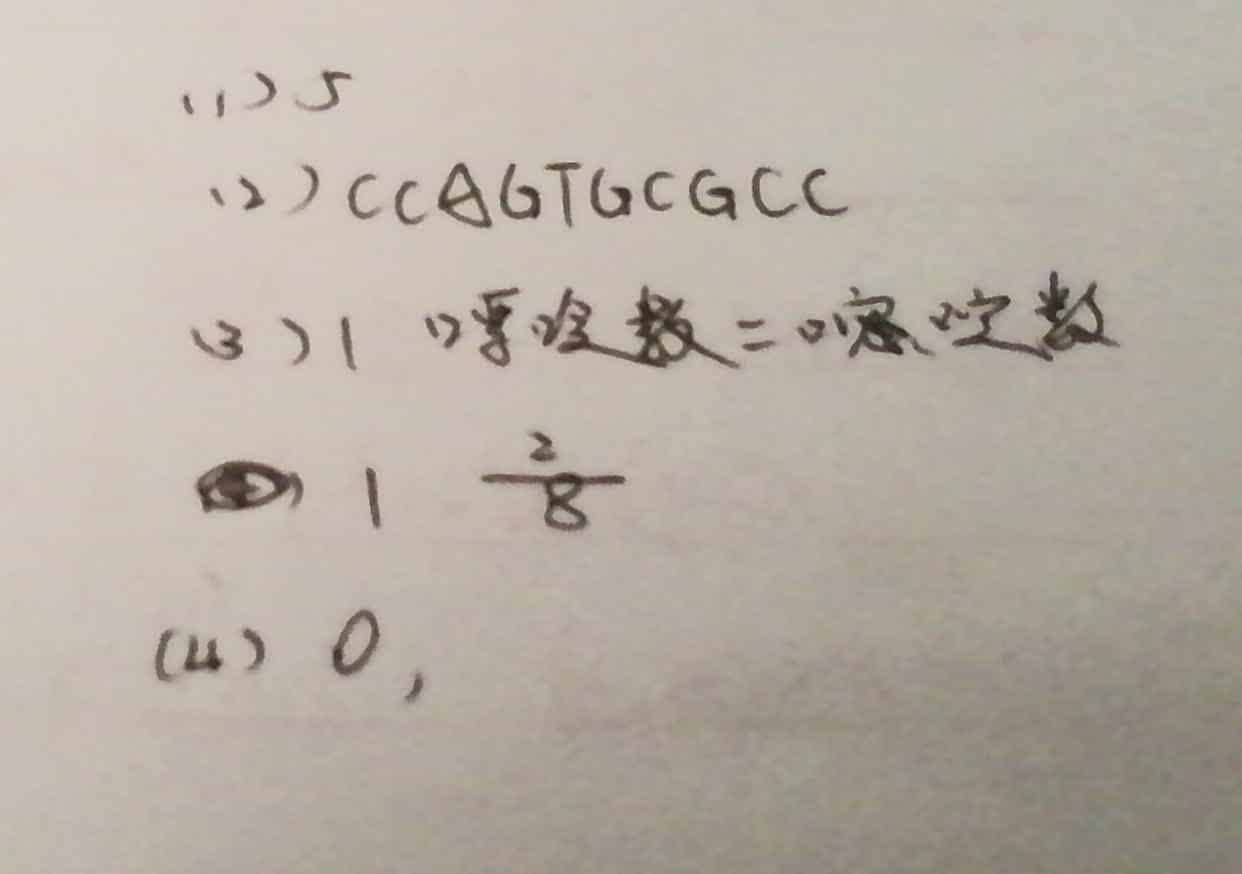 (1) 5
(2) CCAGTGCGCC
(3) 1 嘌呤数=嘧啶数
1 2/8
(4) 0,